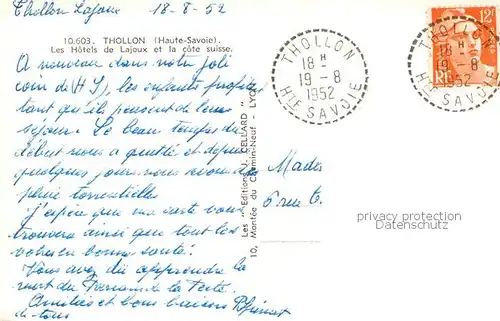 Thollon Lajoux 18-8-52
10.603. THOLLON (Haute-Savoie).
Les Hôtels de Lajoux et la côte suisse.
A nouveau dans notre joli
coin de H S, les enfants profitent
tant qu'ils peuvent de leur
séjour. Le beau temps du
début nous a quitté et depuis
quelques jours nous avons des
pluies torrentielles
J'espère que ma carte vous
trouvera ainsi que tout les
votres en bonne santé.
Vous avez dû apprendre la
mort de
Amitiés et bons baisers
de tous
Les "Editions J. CELLARD"
10, Montée du Chemin-Neuf - LYON
THOLLON
18 H
19-8
1952
HTE SAVOIE
12F
RF
THOLLON
18 H
19-8
1952
HTE SAVOIE
privacy protection
Datenschutz